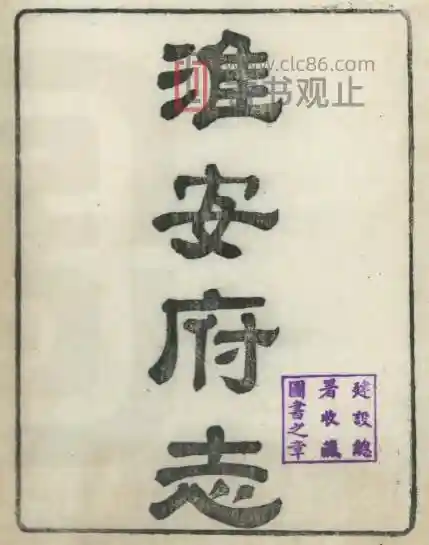 www.clc86.com
书观止
淮安府志
建設總
署收藏
圖書之章